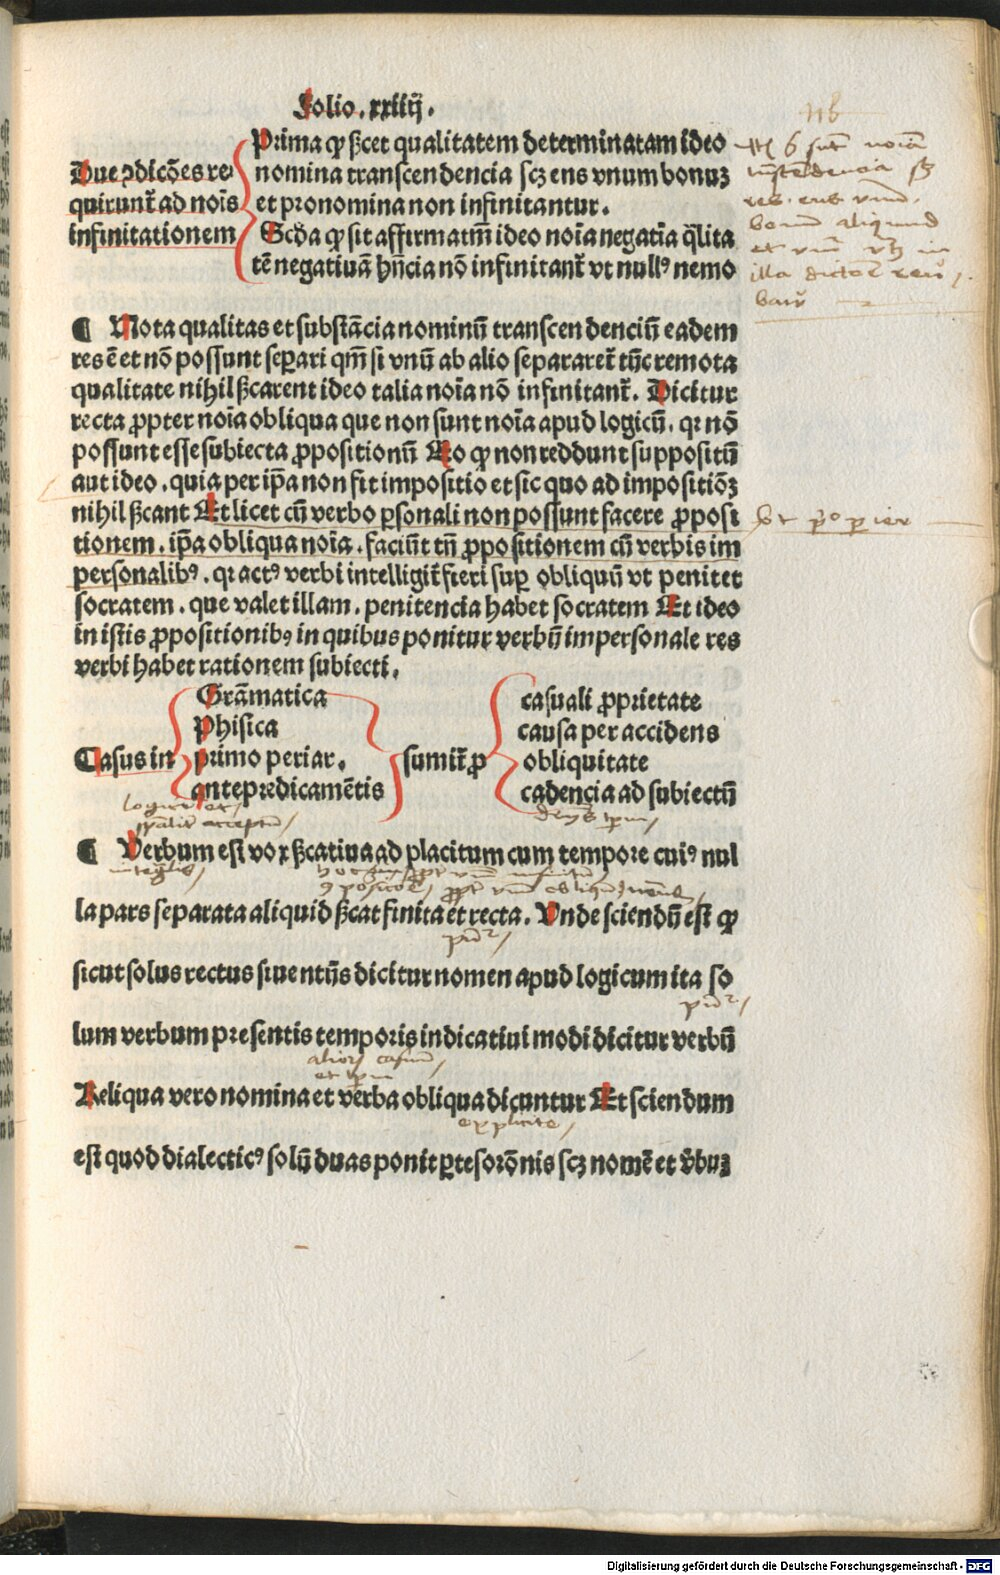 Folio. xxiiij.
Due ↄdicões re⸗
quirunt̃ ad nois
infinitationem
Prima ꝙ ßcet qualitatem determinatam ideo
nomina transcendencia scꝫ ens vnum bonuꝫ
et pronomina non infinitantur.
Scḋa ꝙ sit affirmatiũ ideo noĩa negatĩa q̃lita
tẽ negatiuã hñcia nõ infinitant̃ vt nullꝰ nemo
nb
res. ens vnũ.
bonũ aliquid
¶ Nota qualitas et substãcia nominũ transcendenciũ eadem
res ẽ et nõ possunt seꝑari qm̃ si vnũ ab alio separaret̃ tũc remota
qualitate nihil ßcarent ideo talia noĩa nõ infinitant̃. Dicitur
recta ꝓpter noĩa obliqua que non sunt noĩa apud logicũ. qꝛ nõ
possunt esse subiecta ꝓpositionũ Ro ꝙ non reddunt suppositũ
aut ideo. quia per ip̃a non fit impositio et sic quo ad impositiõꝫ
nihil ßcant Et licet cũ verbo ꝑsonali non possunt facere ꝓposi
tionem. ip̃a obliqua noĩa. faciũt tñ ꝓpositionem cũ verbis im
personalibꝰ. qꝛ actꝰ verbi intelligit̃ fieri suꝑ obliquũ vt penitet
socratem. que valet illam. penitencia habet socratem Et ideo
in istis ꝓpositionibꝰ in quibus ponitur verbũ impersonale res
verbi habet rationem subiecti.
Casus in
Grãmatica
Phisica
primo periar.
antepredicamẽtis
sumit̃ ꝓ
casuali ꝓprietate
causa per accidens
obliquitate
cadencia ad subiectũ
¶ Verbum est vox ßcatiua ad placitum cum tempore cuiꝰ nul
la pars separata aliquid ßcat finita et recta. Vnde sciendũ est ꝙ
sicut solus rectus siue ntũs dicitur nomen apud logicum ita so
lum verbum presentis temporis indicatiui modi dicitur verbũ
aliorũ casuum
Reliqua vero nomina et verba obliqua dicuntur Et sciendum
explicite
est quod dialecticꝰ solũ duas ponit ꝑtes orõnis scꝫ nomẽ et ṽbuꝫ
Digitalisierung gefördert durch die Deutsche Forschungsgemeinschaft - DFG